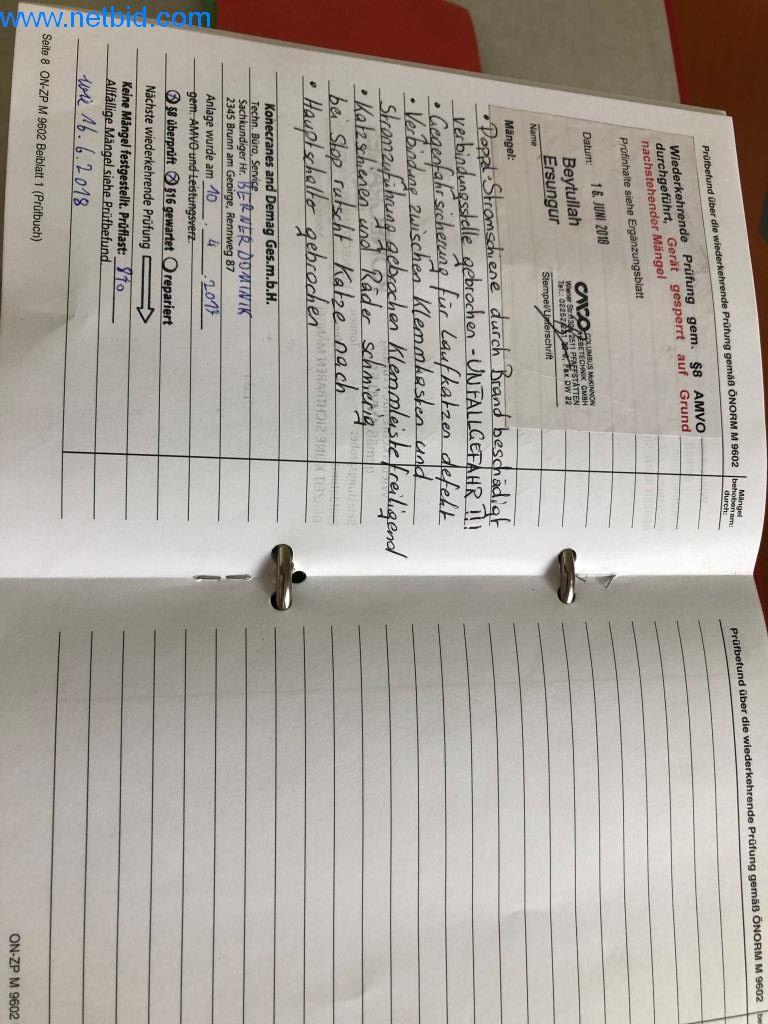 www.netbid.com
Prüfbefund über die wiederkehrende Prüfung gemäß ÖNORM M 9602
Mängel
behoben am:
durch:
Wiederkehrende Prüfung gem. §8 AMVO
durchgeführt, Gerät gesperrt auf Grund
nachstehender Mängel
Prüfinhalte siehe Ergänzungsblatt
Datum: 16. JUNI 2018
COLUMBUS McKINNON
Beytullah
Ersungur
Name
Stempel/Unterschrift
Mängel:
• Doppel-Stromschiene durch Brand beschädigt
verbindungsstelle gebrochen - UNFALLGEFAHR !!!
• Gegenfahrsicherung für Laufkatzen defekt
• Verbindung zwischen Klemmkasten und
Stromzuführung gebrochen Klemmleiste freiligend
• Katzschienen und Räder schmierig
bei Stop rutscht Katze nach
• Hauptschalter gebrochen
Konecranes and Demag Ges.m.b.H.
Techn. Büro, Service
Sachkundiger Hr. BERNER DOMINIK
2345 Brunn am Gebirge, Rennweg 87
Anlage wurde am 10 . 4 . 2017
gem. AMVO und Leistungsverz.
§8 überprüft §16 gewartet repariert
Nächste wiederkehrende Prüfung
Keine Mängel festgestellt. Prüflast:
Allfällige Mängel siehe Prüfbefund
16.6.2018
Seite 8 ON-ZP M 9602 Beiblatt 1 (Prüfbuch)
Prüfbefund über die wiederkehrende Prüfung gemäß ÖNORM M 9602
be
ON-ZP M 9602